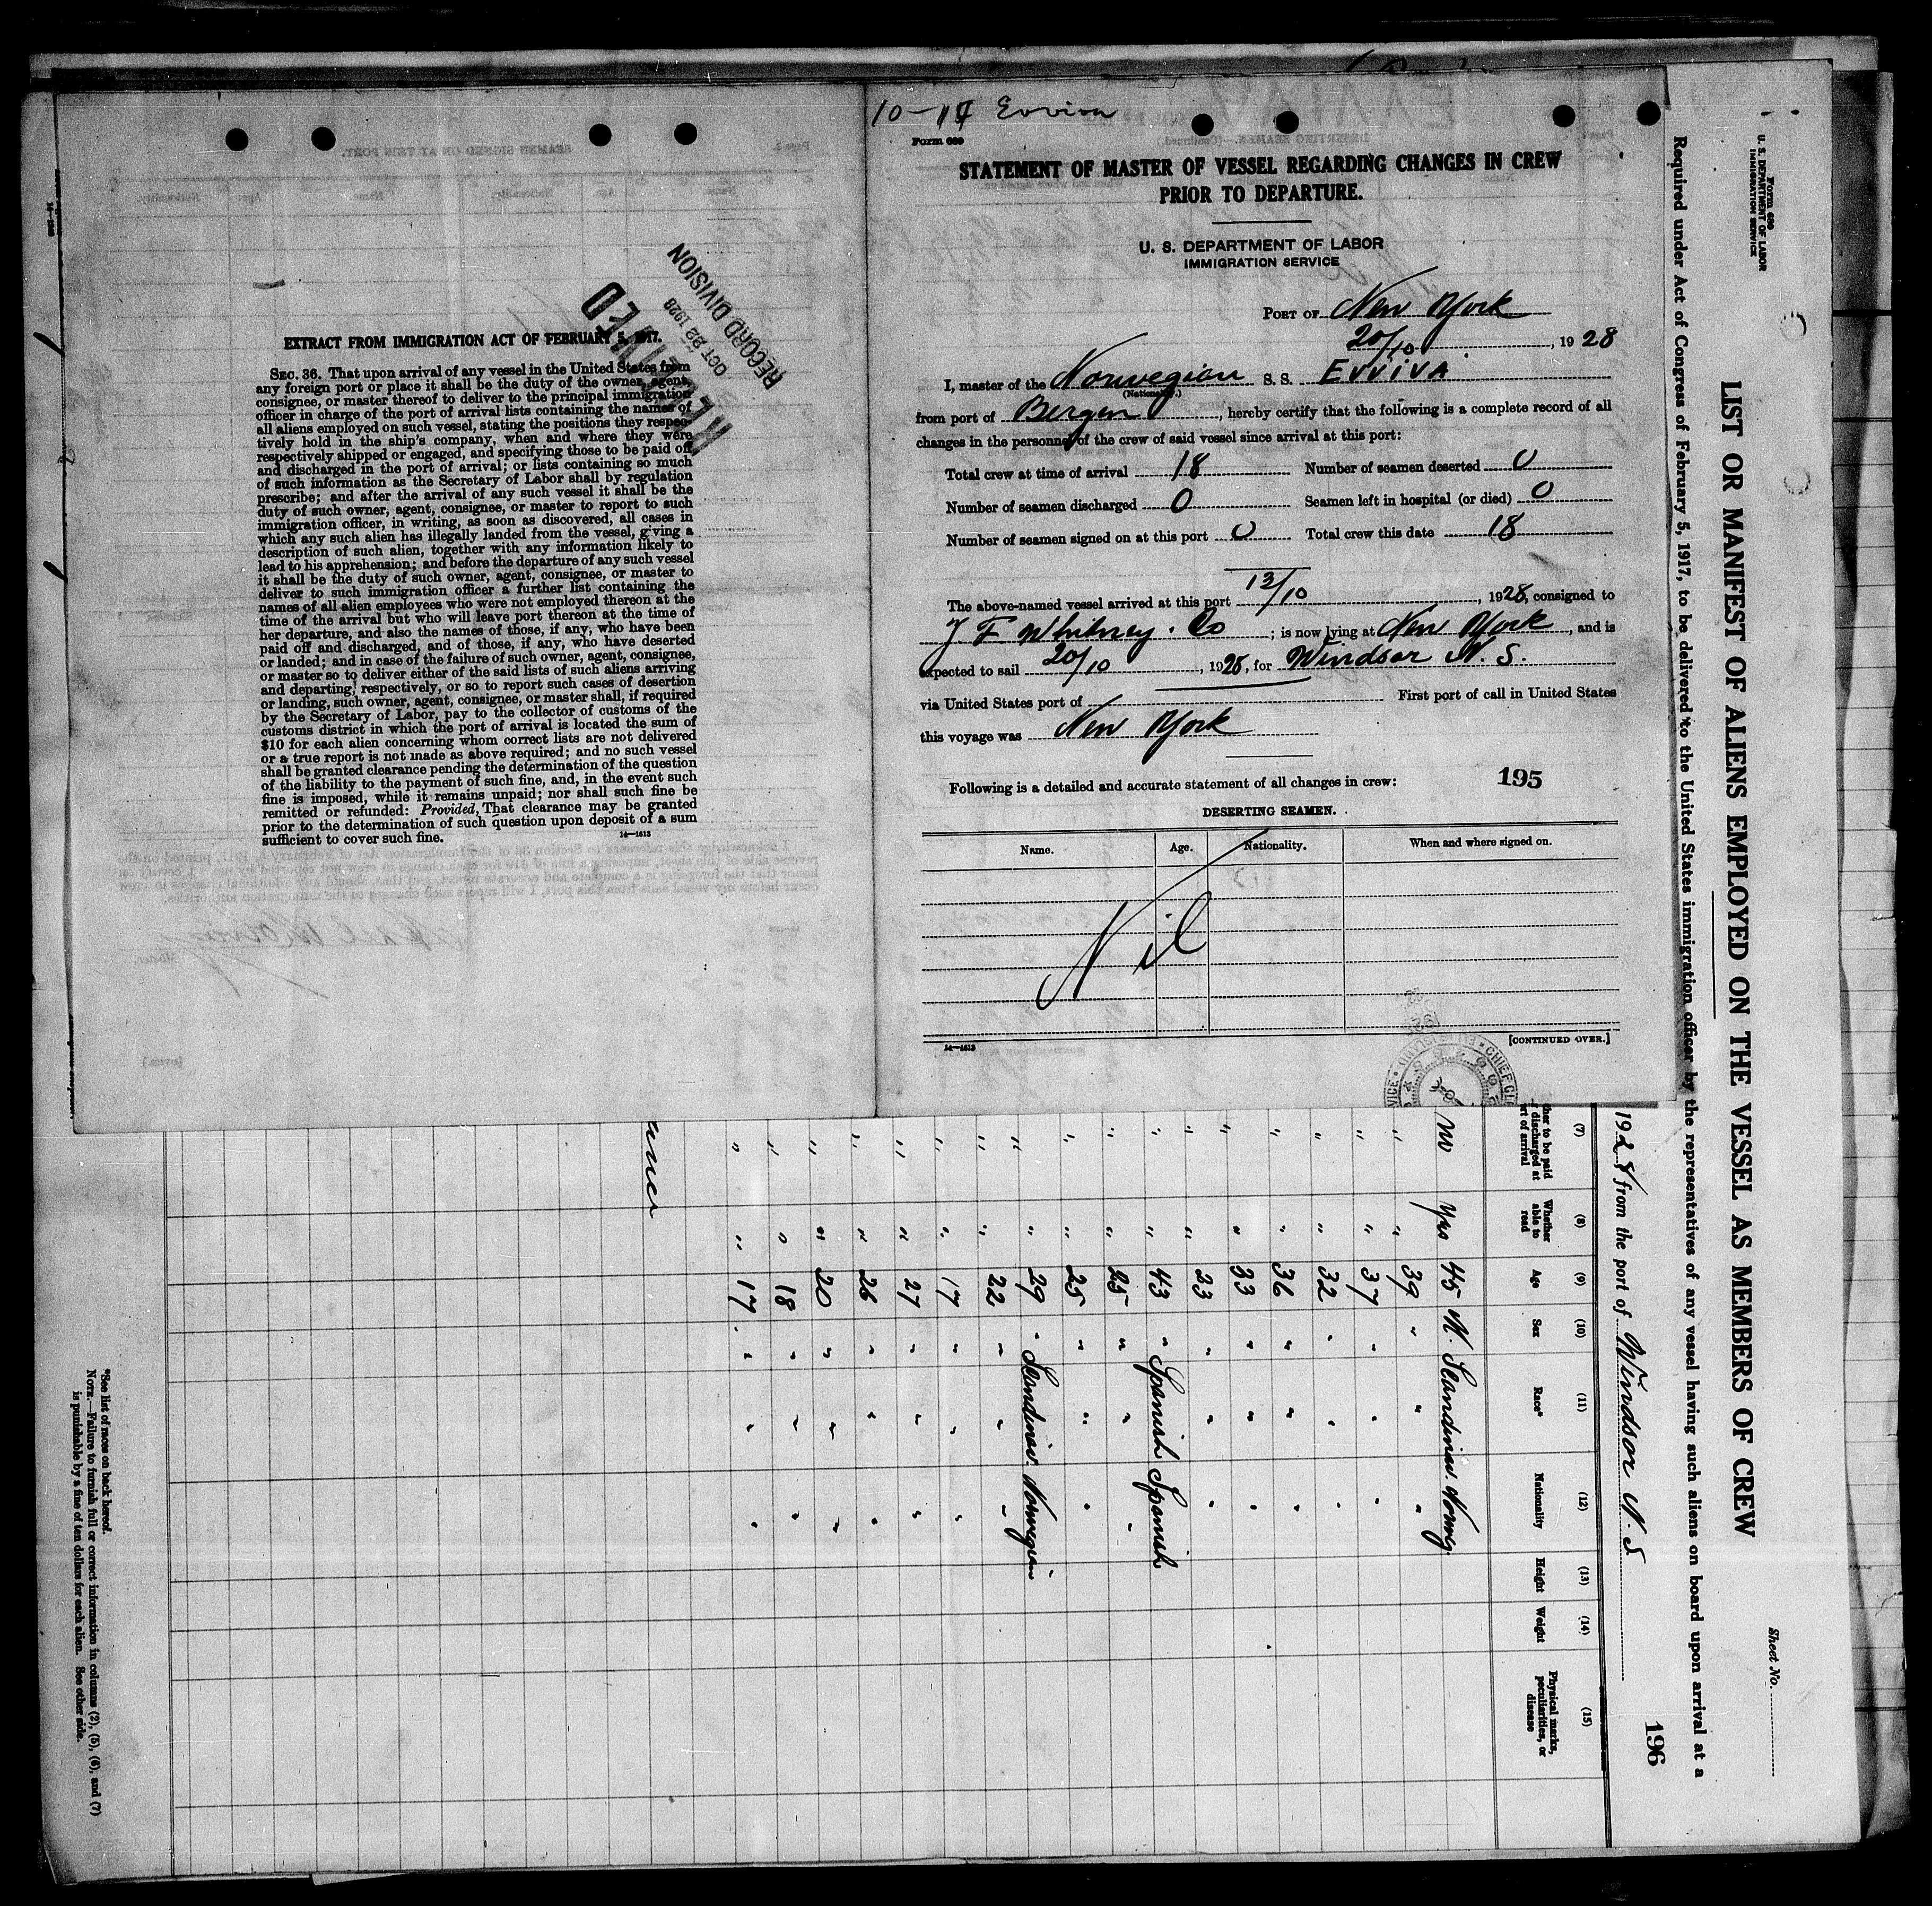 10-14 Evviva
Form 689
STATEMENT OF MASTER OF VESSEL REGARDING CHANGES IN CREW
PRIOR TO DEPARTURE.
U. S. DEPARTMENT OF LABOR
IMMIGRATION SERVICE
PORT OF New York
20/10, 1928
I, master of the Norwegian S. S. EVVIVA
(Nationality.)
from port of Bergen, hereby certify that the following is a complete record of all
changes in the personnel of the crew of said vessel since arrival at this port:
Total crew at time of arrival 18 Number of seamen deserted 0
Number of seamen discharged 0 Seamen left in hospital (or died) 0
Number of seamen signed on at this port 0 Total crew this date 18
The above-named vessel arrived at this port 13/10, 1928, consigned to
J F Whitney. Co; is now lying at New York, and is
expected to sail 20/10, 1928, for Windsor N. S.
via United States port of First port of call in United States
this voyage was New York
Following is a detailed and accurate statement of all changes in crew: 195
DESERTING SEAMEN.
Name. Age. Nationality. When and where signed on.
Nil
14—1613 [CONTINUED OVER.]
EXTRACT FROM IMMIGRATION ACT OF FEBRUARY 5, 1917.
SEC. 36. That upon arrival of any vessel in the United States from
any foreign port or place it shall be the duty of the owner, agent,
consignee, or master thereof to deliver to the principal immigration
officer in charge of the port of arrival lists containing the names of
all aliens employed on such vessel, stating the positions they respec-
tively hold in the ship's company, when and where they were
respectively shipped or engaged, and specifying those to be paid off
and discharged in the port of arrival; or lists containing so much
of such information as the Secretary of Labor shall by regulation
prescribe; and after the arrival of any such vessel it shall be the
duty of such owner, agent, consignee, or master to report to such
immigration officer, in writing, as soon as discovered, all cases in
which any such alien has illegally landed from the vessel, giving a
description of such alien, together with any information likely to
lead to his apprehension; and before the departure of any such vessel
it shall be the duty of such owner, agent, consignee, or master to
deliver to such immigration officer a further list containing the
names of all alien employees who were not employed thereon at the
time of the arrival but who will leave port thereon at the time of
her departure, and also the names of those, if any, who have been
paid off and discharged, and of those, if any, who have deserted
or landed; and in case of the failure of such owner, agent, consignee,
or master so to deliver either of the said lists of such aliens arriving
and departing, respectively, or so to report such cases of desertion
or landing, such owner, agent, consignee, or master shall, if required
by the Secretary of Labor, pay to the collector of customs of the
customs district in which the port of arrival is located the sum of
$10 for each alien concerning whom correct lists are not delivered
or a true report is not made as above required; and no such vessel
shall be granted clearance pending the determination of the question
of the liability to the payment of such fine, and, in the event such
fine is imposed, while it remains unpaid; nor shall such fine be
remitted or refunded: Provided, That clearance may be granted
prior to the determination of such question upon deposit of a sum
sufficient to cover such fine. 14—1613
RECEIVED
OCT 22 1928
RECORD DIVISION
Form 680
U. S. DEPARTMENT OF LABOR
IMMIGRATION SERVICE
Sheet No.
LIST OR MANIFEST OF ALIENS EMPLOYED ON THE VESSEL AS MEMBERS OF CREW
Required under Act of Congress of February 5, 1917, to be delivered to the United States immigration officer by the representatives of any vessel having such aliens on board upon arrival at a
1928 from the port of Windsor N. S 196
(7) (8) (9) (10) (11) (12) (13) (14) (15)
ther to be paid discharged at rt of arrival Whether able to read Age Sex Race* Nationality Height Weight Physical marks, peculiarities, or disease
No Yes 45 M. Scandinav. Norweg.
" " 39 " " "
" " 37 " " "
" " 32 " " "
" " 36 " " "
" " 33 " " "
" " 23 " " "
" " 43 " Spanish Spanish
" " 25 " " "
" " 25 " " "
" " 29 " Scandinav. Norwegian
" " 22 " " "
" " 17 " " "
" " 27 " " "
" " 26 " " "
" " 20 " " "
" " 18 " " "
" " 17 " " "
*See list of races on back hereof.
NOTE.—Failure to furnish full or correct information in columns (2), (5), (6), and (7)
is punishable by a fine of ten dollars for each alien. See other side.